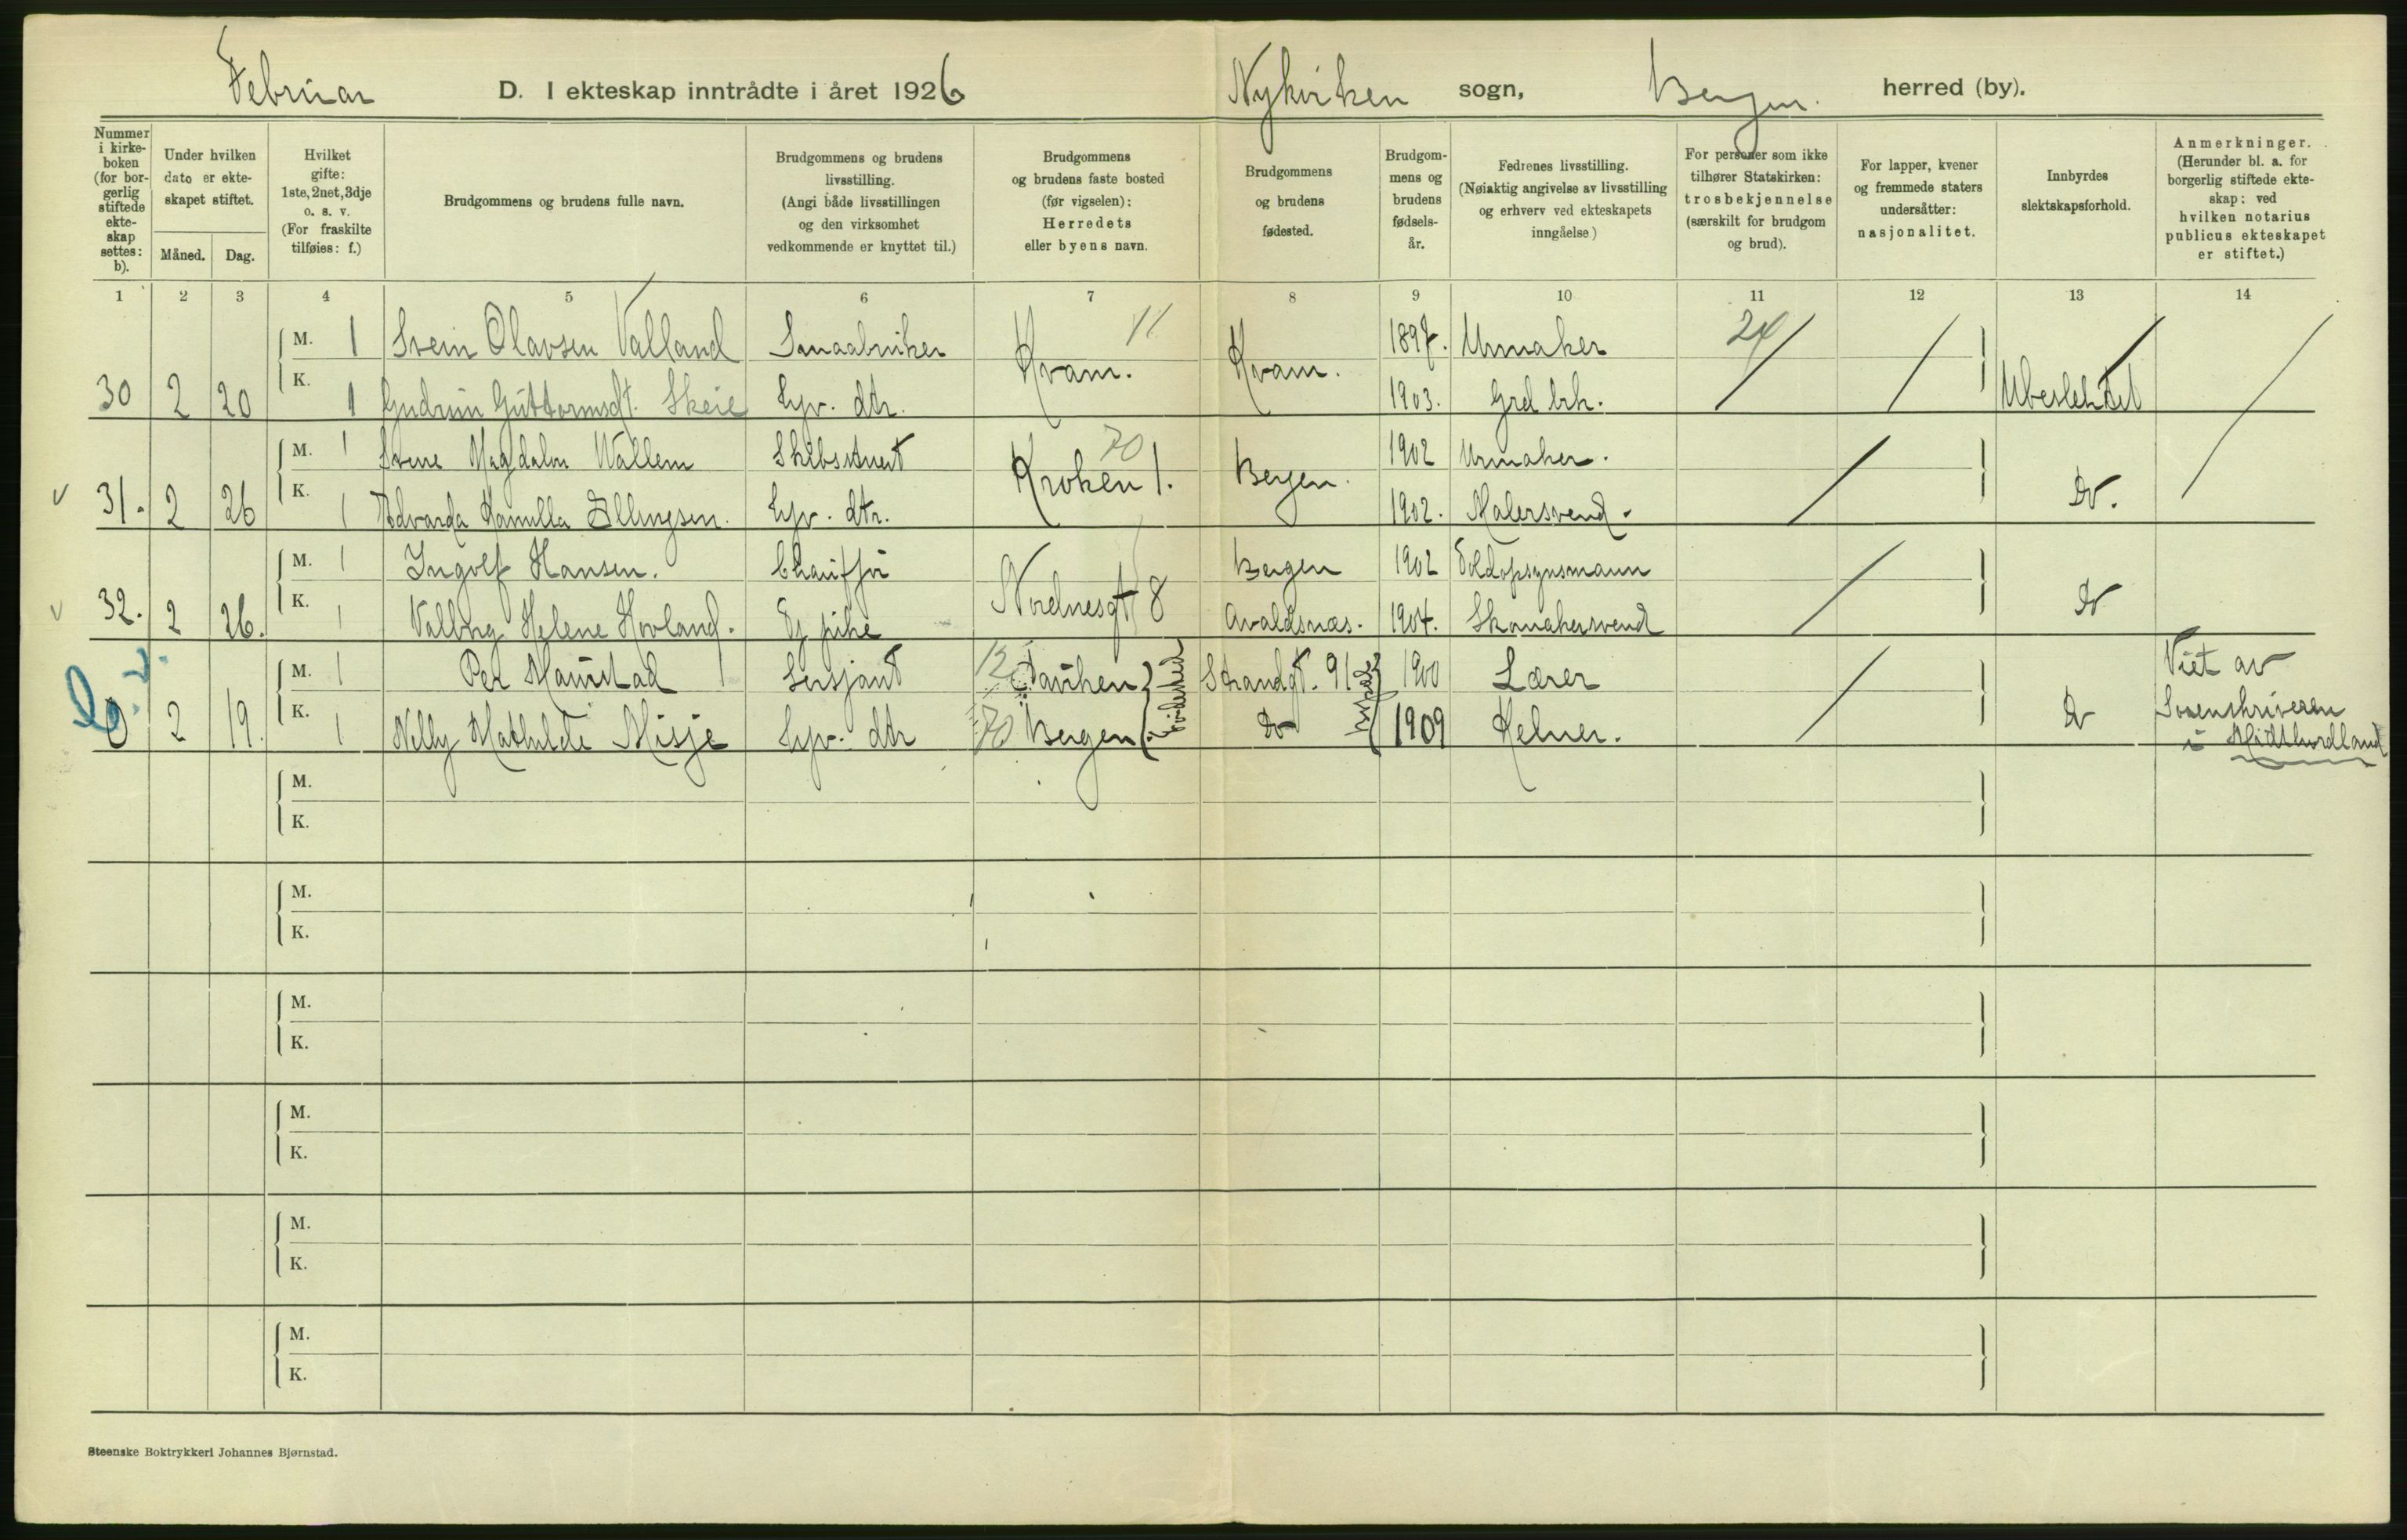 Februar D. I ekteskap inntrådte i året 1926 Nykirken sogn, Bergen. herred (by).
Nummer i kirke-boken (for bor-gerlig stiftede ekte-skap settes: b).
Under hvilken dato er ekte-skapet stiftet.
Måned. Dag.
Hvilket gifte: 1ste, 2net, 3dje o. s. v. (For fraskilte tilføies: f.)
Brudgommens og brudens fulle navn.
Brudgommens og brudens livsstilling. (Angi både livsstillingen og den virksomhet vedkommende er knyttet til.)
Brudgommens og brudens faste bosted (før vigselen): Herredets eller byens navn.
Brudgommens og brudens fødested.
Brudgom-mens og brudens fødsels-år.
Fedrenes livsstilling. (Nøiaktig angivelse av livsstilling og erhverv ved ekteskapets inngåelse)
For personer som ikke tilhører Statskirken: trosbekjennelse (særskilt for brudgom og brud).
For lapper, kvener og fremmede staters undersåtter: nasjonalitet.
Innbyrdes slektskapsforhold.
Anmerkninger. (Herunder bl. a. for borgerlig stiftede ekte-skap: ved hvilken notarius publicus ekteskapet er stiftet.)
1 2 3 4 5 6 7 8 9 10 11 12 13 14
M. 1 Svein Olavsen Valland Smaabruker 11 1897. Urmaker 24
30 2 20 K. 1 Gudrun Guttormsdt. Skeie Hjv. dtr. Kvam. Kvam. 1903. Grd brk. Ubeslektet
M. 1 Magdalon Wallem Skibsstuert 70 1902 Urmaker.
31. 2 26 K. 1 Edvarda Kamilla Ellingsen. Hjv. dtr. Kroken 1. Bergen. 1902. Malersvend. Do.
M. 1 Ingolf Hansen. Chauffør Bergen 1902 Toldopsynsmann
32. 2 26. K. 1 Valborg Helene Hovland. Hj pike Nordnesgt 8 Avaldsnæs. 1904. Skomakersvend Do
M. 1 Per Maurstad Sersjant 12 Strandgt. 91 1900 Lærer Viet av
b 2 19. K. 1 Nelly Mathilde Misje Hjv. dtr 70 Bergen Do 1909 Kelner. Do Sorenskriveren
i Midthordland
M.
K.
M.
K.
M.
K.
M.
K.
M.
K.
M.
K.
Steenske Boktrykkeri Johannes Bjørnstad.